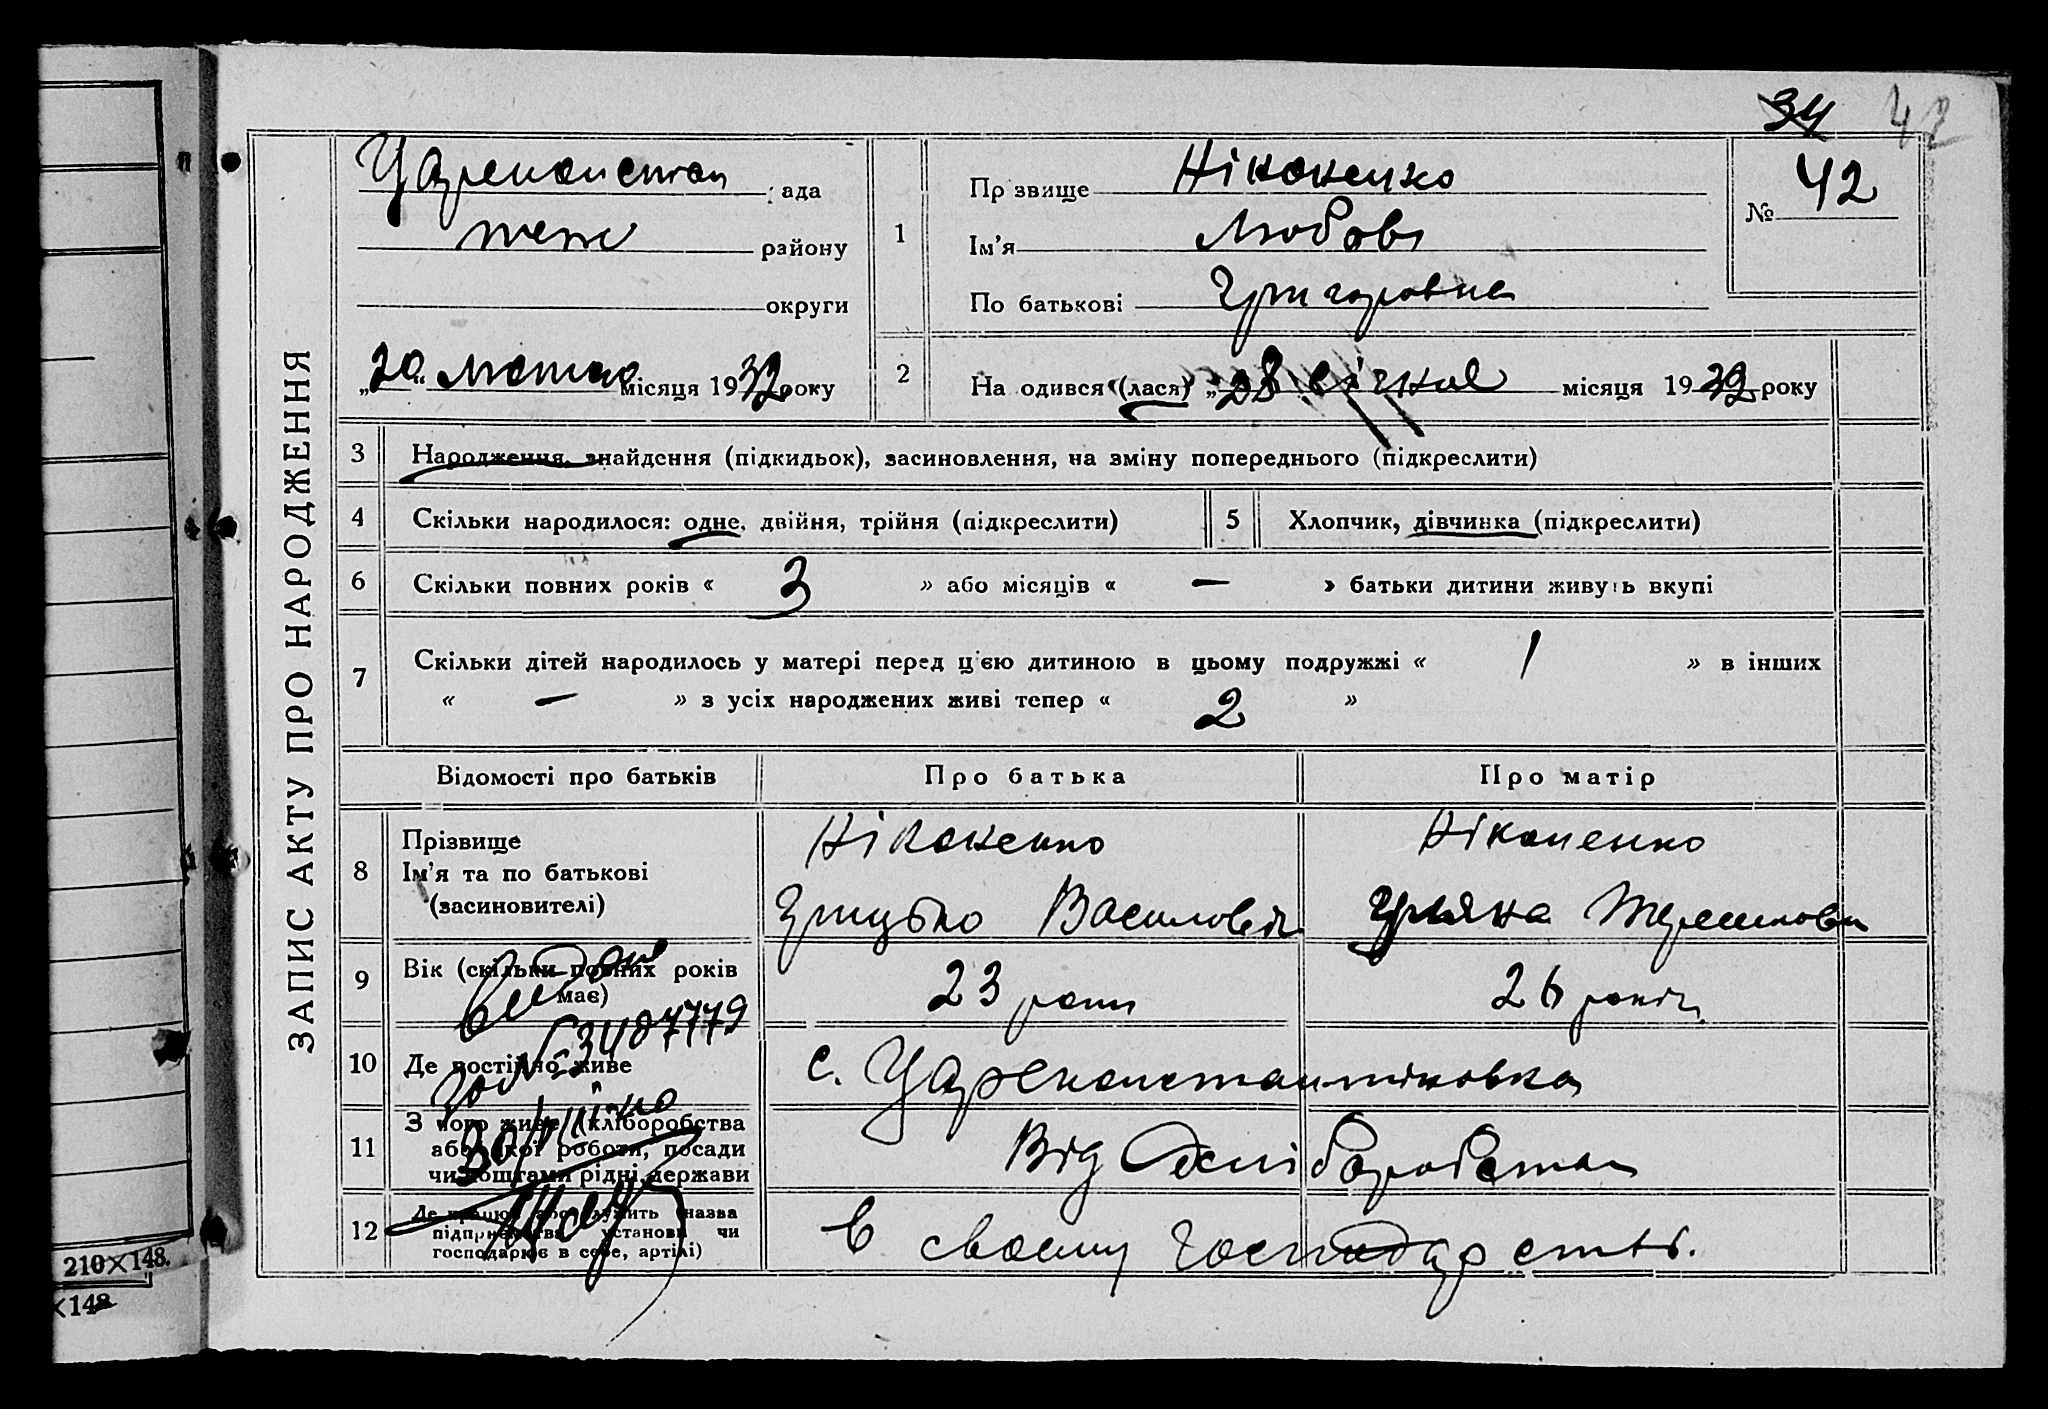 34 42
ЗАПИС АКТУ ПРО НАРОДЖЕННЯ
Цареконстан рада
теж району
округи
„20“ лютого місяця 1932 року
1
Прізвище Ніконенко
Ім'я Любов
По батькові Григоровна
№ 42
2
Народився (лася) „28 січня місяця 1932 року
3 Народження, знайдення (підкидьок), засиновлення, на зміну попереднього (підкреслити)
4 Скільки народилося: одне, двійня, трійня (підкреслити)
5 Хлопчик, дівчинка (підкреслити)
6 Скільки повних років « 3 » або місяців « — » батьки дитини живуть вкупі
7 Скільки дітей народилось у матері перед цією дитиною в цьому подружжі « 1 » в інших
« — » з усіх народжених живі тепер « 2 »
Відомості про батьків Про батька Про матір
8 Прізвище Ніконенко Ніконенко
Ім'я та по батькові
(засиновителі) Грицько Василович Уляна
9 Вік (скільки повних років має) 23 роки 26 років
10 Де постійно живе с. Цареконстантіновка
11 З чого живе (хліборобства
або якої роботи, посади
чи коштами рідні, держави Від хліборобства
12 Де працює або служить (назва
підприємства, установи чи
господарює в себе, артілі) в своему господарстві.
№ 3487779
210×148.
×148